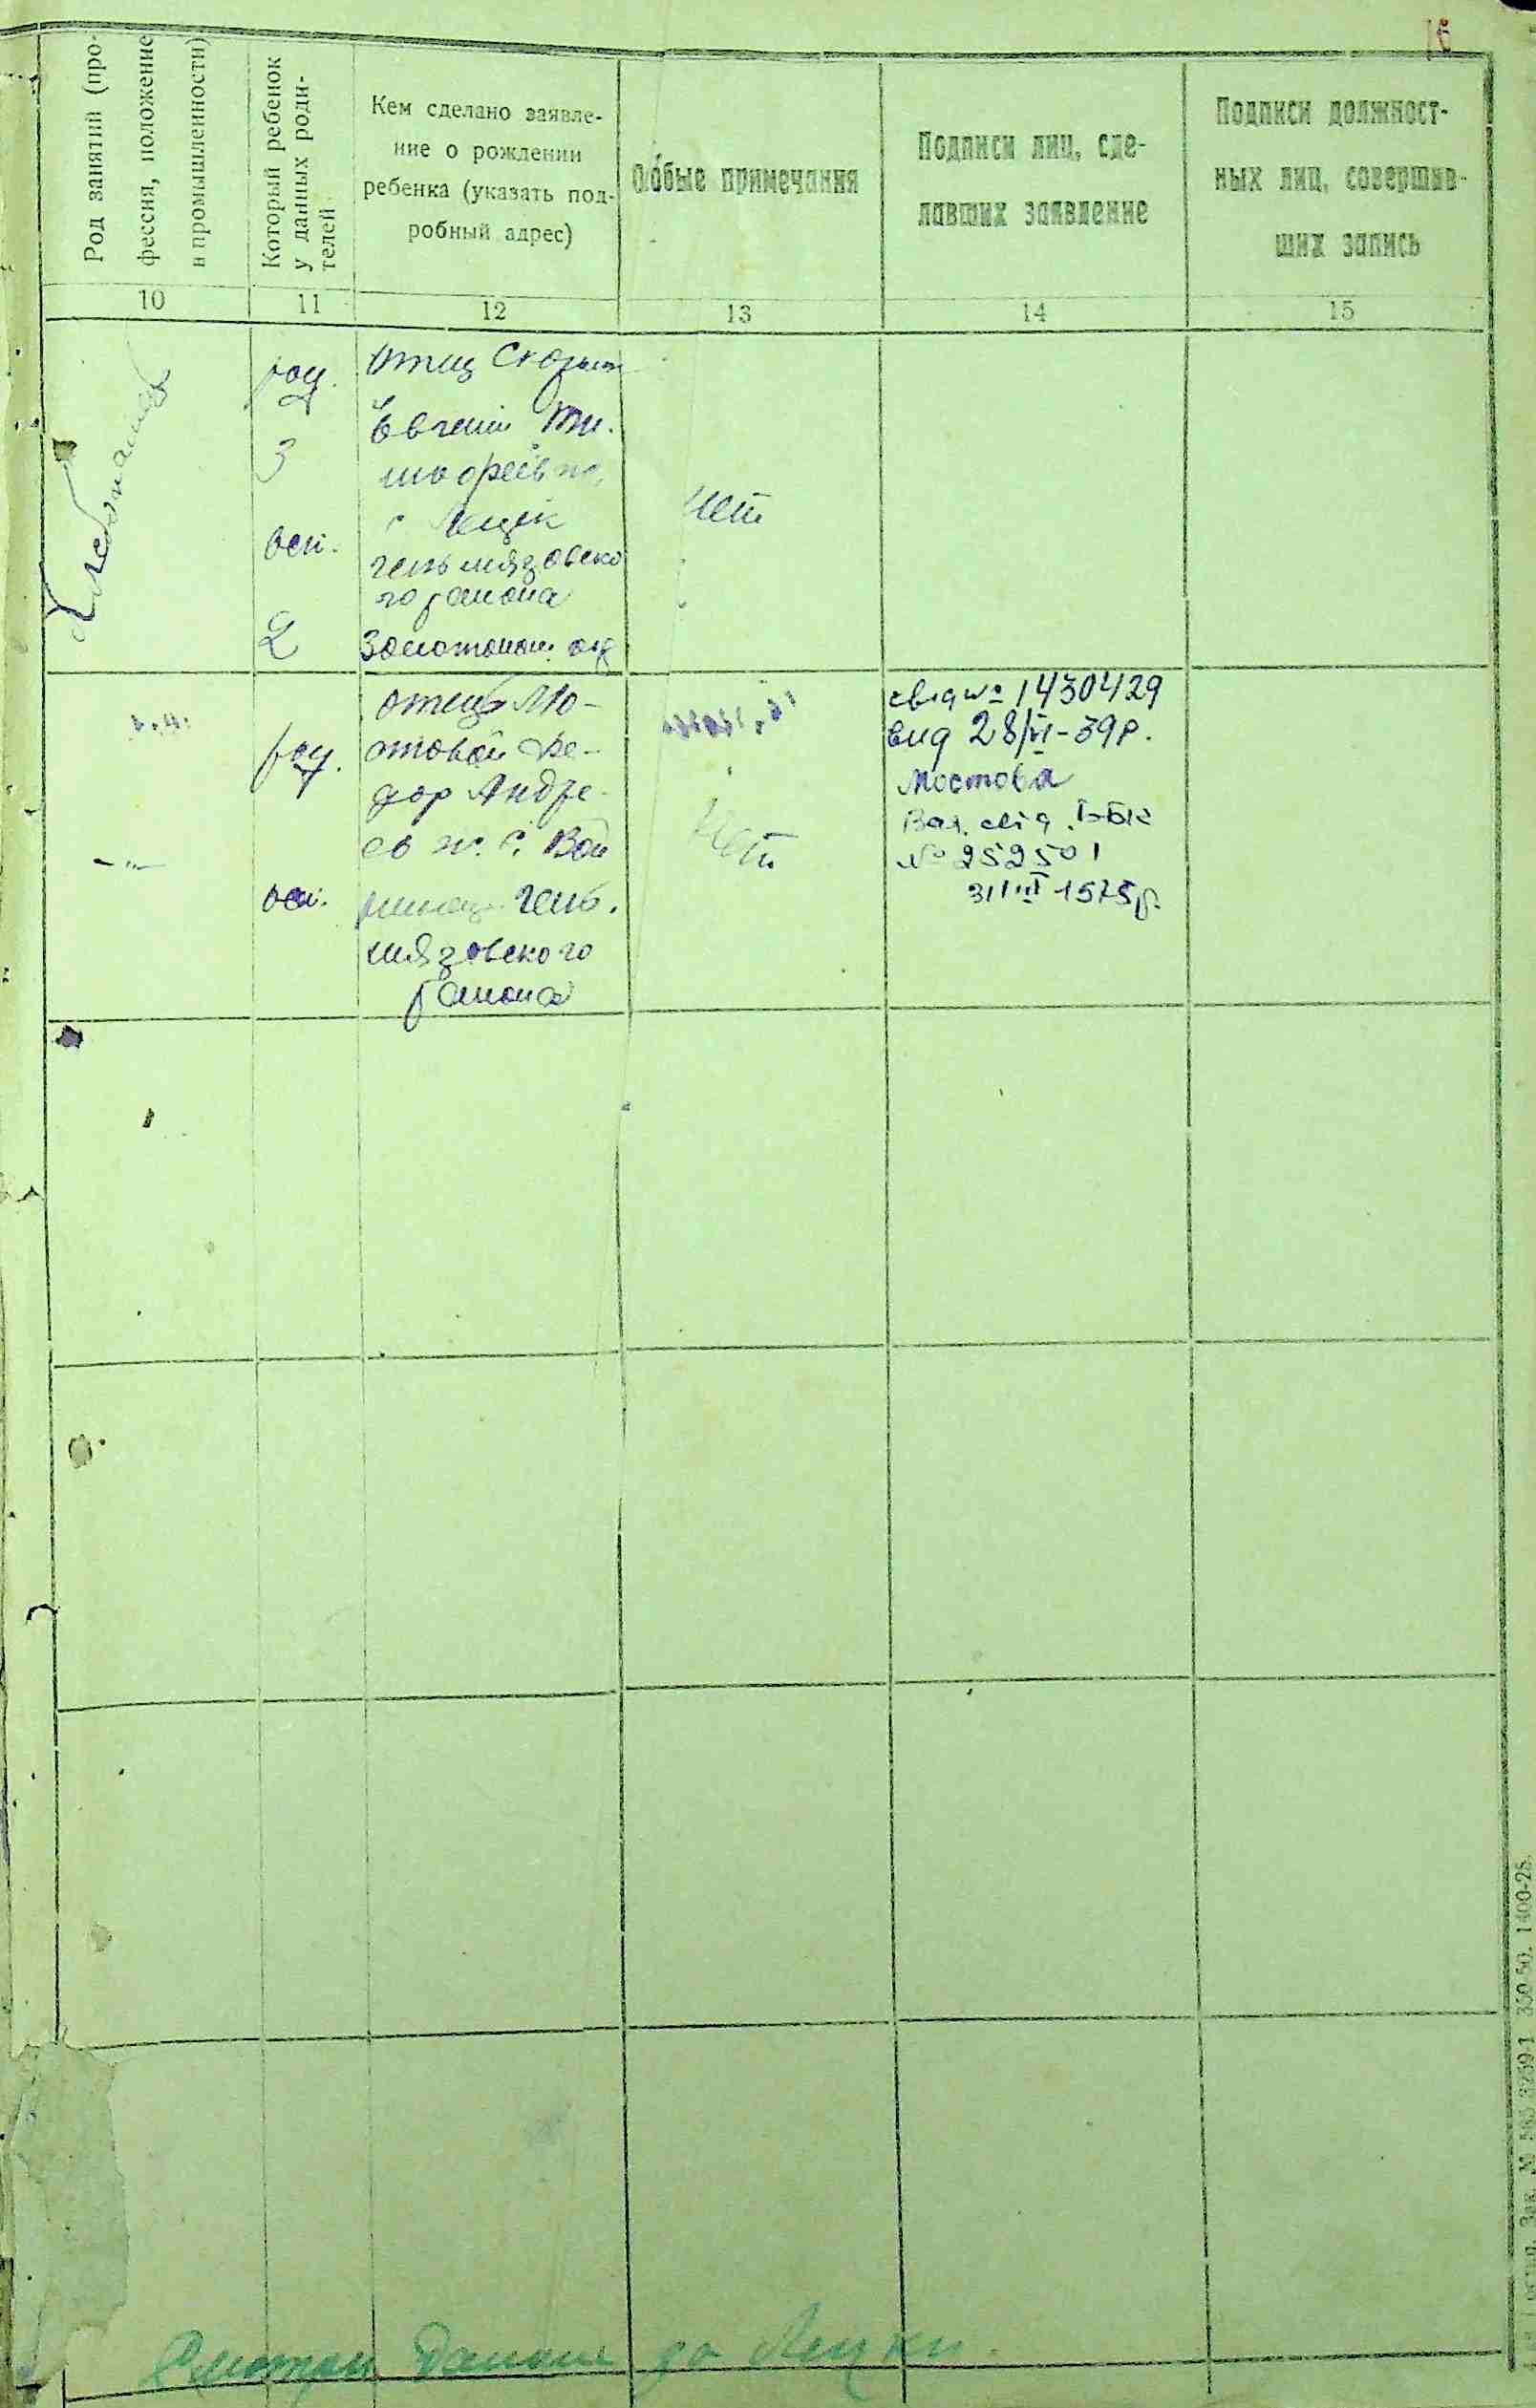 Род занятий (про-
фессия, положение
в промышленности)
Который ребенок
у данных роди-
телей
Кем сделано заявле-
ние о рождении
ребенка (указать под-
робный адрес)
Особые примечания
Подписи лиц, сде-
лавших заявление
Подписи должност-
ных лиц, совершив-
ших запись
10
11
12
13
14
15
Хлебопашец
род.
3
осн.
2
Отец
Евгений Ти-
мофеев
с.
гельмязовско
го района
Золотонош. окр
Нет
-"-
род.
осн.
отець Мо-
стовой Фе-
дор Андре-
ев ж. с.
гель.
мязовского
района
Нет
свид № 1430429
вид 28/VI-39р.
Мостова
№ 252501
Смотри дальше до Лецки.